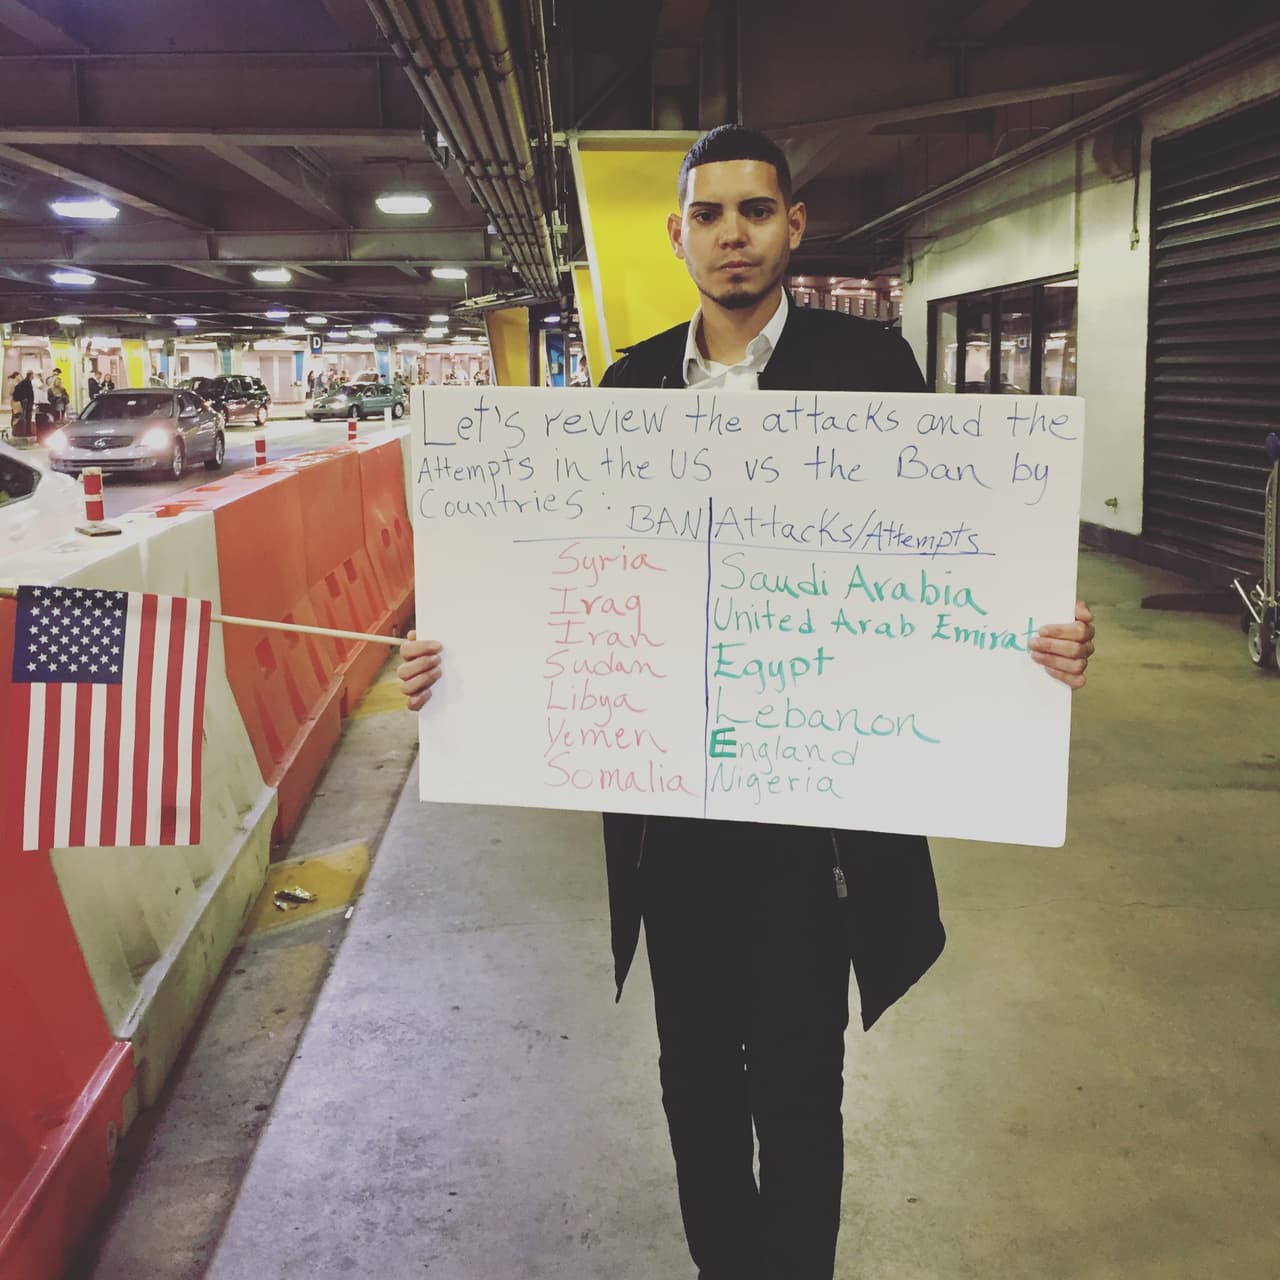 Let's review the attacks and the
Attempts in the US vs the Ban by
Countries:
BAN Attacks/Attempts
Syria Saudi Arabia
Iraq United Arab Emirat
Iran Egypt
Sudan Lebanon
Libya England
Yemen Nigeria
Somalia
D